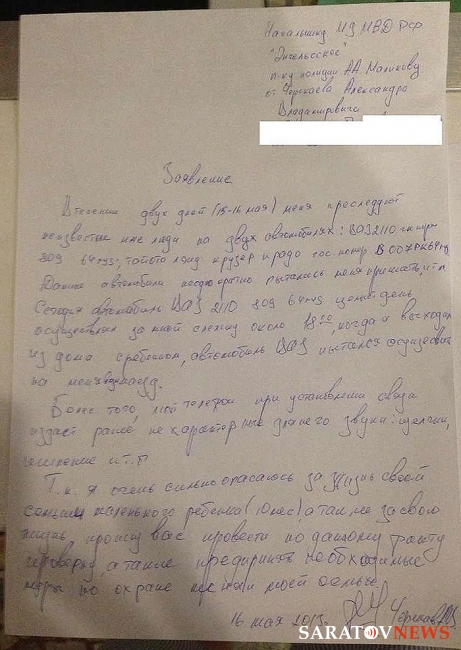 Начальнику МУ МВД РФ
"Энгельсское"
п-ку полиции А.А. Маликову
от Черкаева Александра
Владимировича
Заявление
В течении двух дней (15-16 мая) меня преследуют
неизвестные мне люди на двух автомобилях:
тойота крузер прадо гос. номер
Данные автомобили неоднократно пытались меня прижать, и т.п.
Сегодня автомобиль ВАЗ 2110 809 целый день
осуществлял за мной слежку около 18:00, когда я выходил
из дома с ребенком, автомобиль ВАЗ пытался осуществить
на меня наезд.
Более того, мой телефон при установлении связи
издает ранее не характерные для него звуки: щелчки,
шипение и т.п
Т.к. я очень сильно опасаюсь за жизнь своей
семьи и маленького ребенка (10 мес), а так же за свою
жизнь, прошу вас провести по данному факту
проверку, а также предпринять необходимые
меры по охране жизни моей семьи
16 мая 2013. Черкаев
SARATOVNEWS